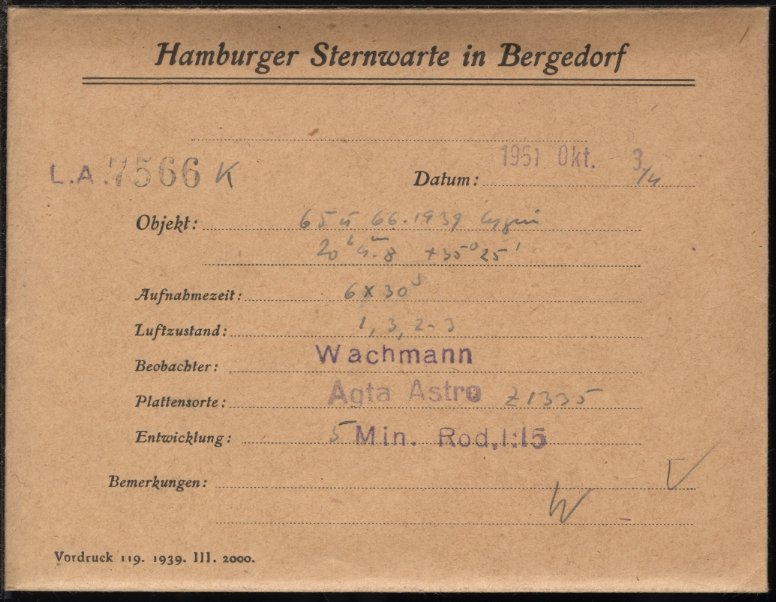 Hamburger Sternwarte in Bergedorf
L.A. 7566 K
Datum: 1951 Okt. 3/4
Objekt: 65 u 66.1939 Cygni
20ʰ 4ᵐ.8 +35° 25'
Aufnahmezeit: 6 x 30ˢ
Luftzustand: 1, 3, 2-3
Beobachter: Wachmann
Plattensorte: Agfa Astro Z1335
Entwicklung: 5 Min. Rod, 1:15
Bemerkungen:
W -
Vordruck 119. 1939. III. 2000.